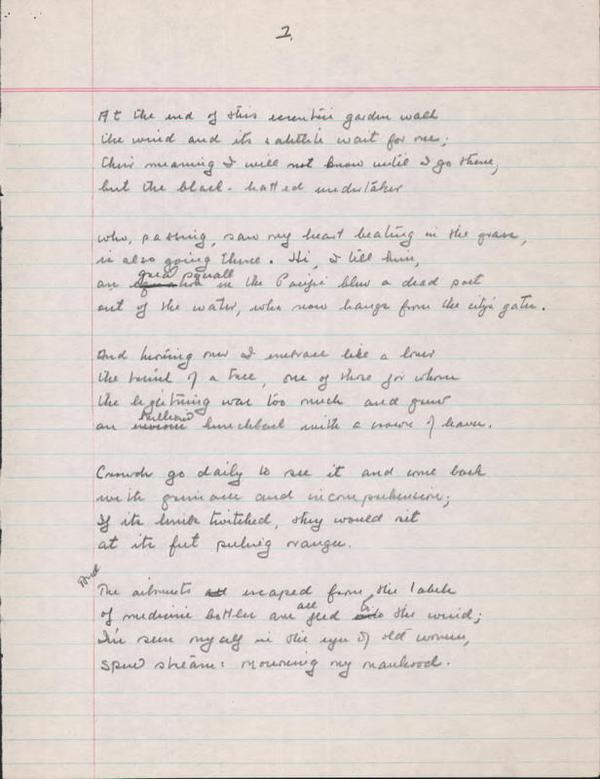 2.
At the end of this garden walk
the wind and its satellite wait for me;
their meaning I will not know until I go there,
but the black-hatted undertaker
who, passing, saw my heart beating in the grass,
is also going there. Hi, I tell him,
great squall
an in the Pacific blew a dead poet
out of the water, who now hangs from the city's gates.
And turning over I embrace like a lover
the trunk of a tree, one of those for whom
the lightning was too much and grew
brilliant
an hunchback with a crown of leaves.
Crowds go daily to see it and come back
with grimaces and incomprehension;
If its limbs twitched, they would sit
at its feet peeling oranges.
The ailments escaped from the labels
of medicine bottles are all fled to the wind;
I've seen myself in the eyes of old women,
spent streams mourning my manhood.